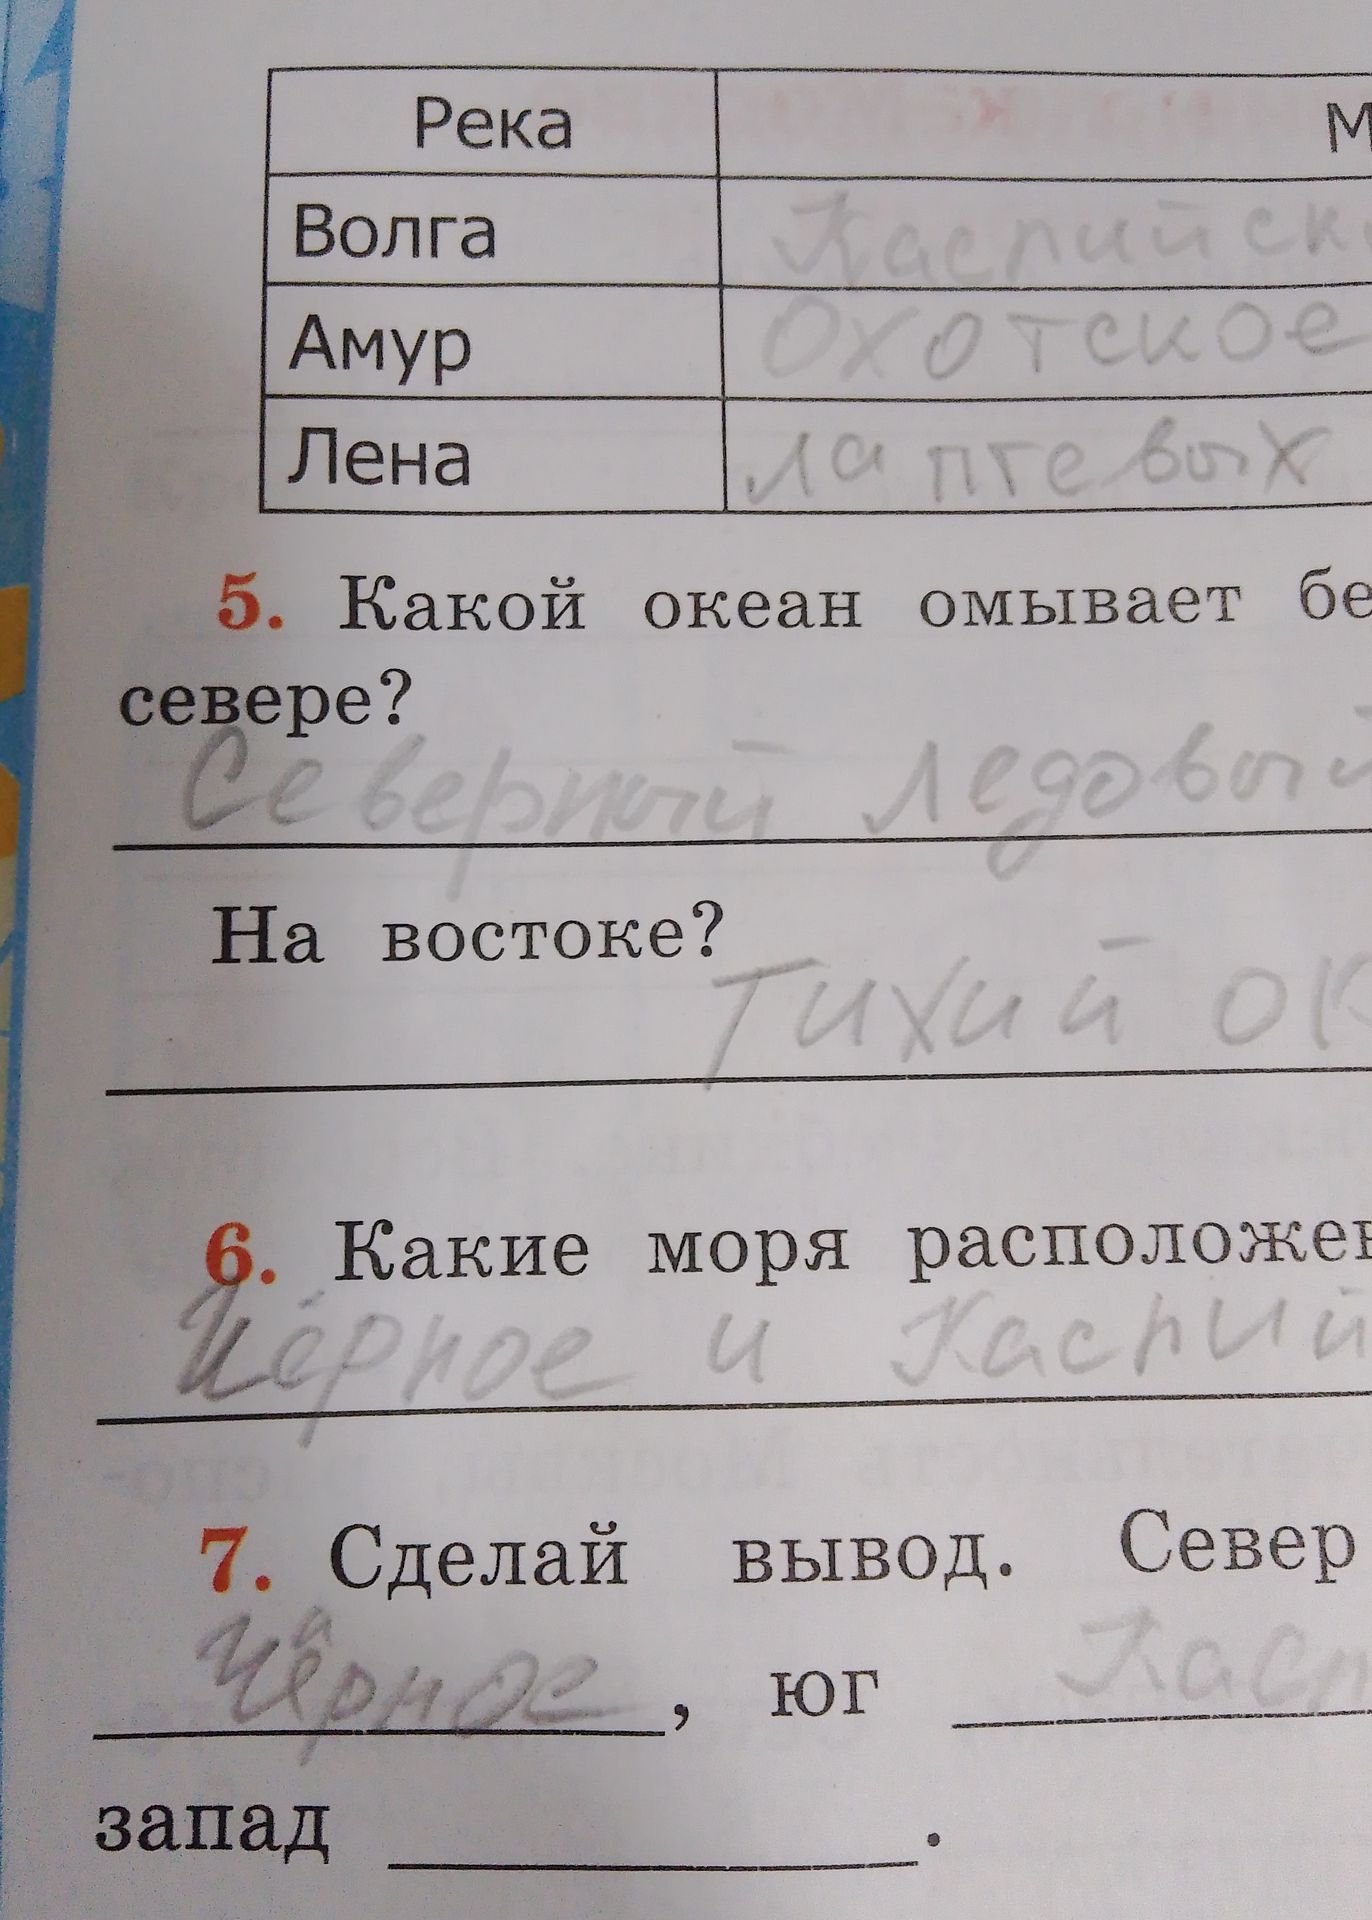 Река М
Волга Каспийск
Амур Охотское
Лена лаптевых
5. Какой океан омывает бе
севере?
Северный ледовый
На востоке?
Тихий ок
6. Какие моря расположен
Чёрное и Каспий
7. Сделай вывод. Север
Чёрное, юг Касп
запад .